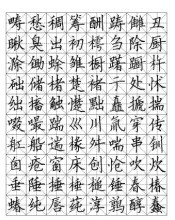 畴愁稠筹酬踌雠丑
瞅臭出初樗刍除厨
滁锄蜍雏橱躇蹰杵
础储楮楚褚亍处怵
绌搐触憷黜矗搋揣
啜嘬踹巛川氚穿传
舡船遄椽舛喘串钏
囱疮窗床创怆吹炊
垂陲捶棰槌锤春椿
蝽纯唇莼淳鹑醇蠢